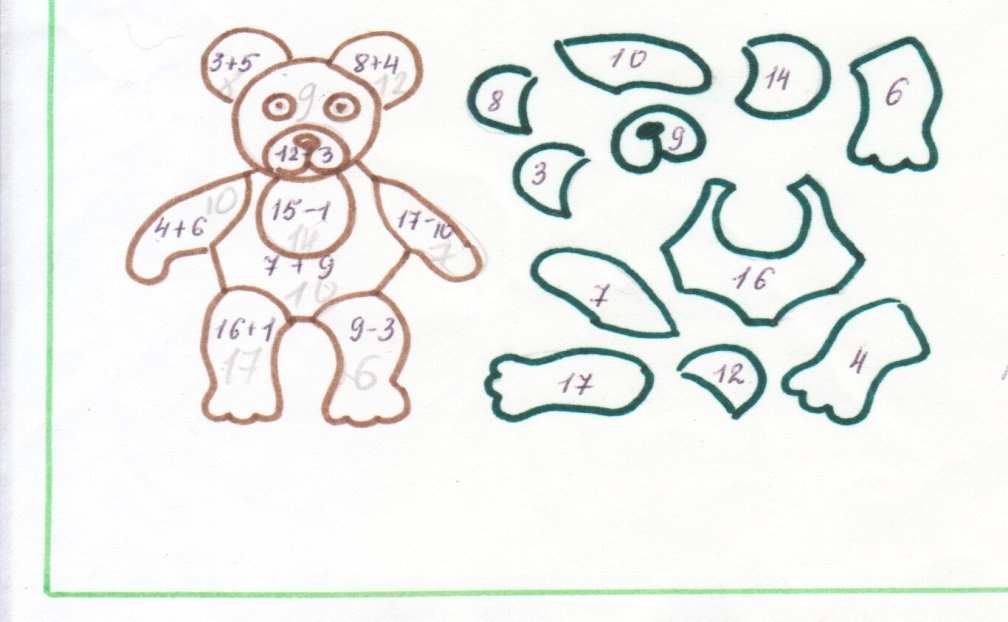 3+5
8
8+4
12
9
12-3
4+6
10
15-1
14
17-10
7
7+9
16
16+1
17
9-3
6
10
14
6
8
9
3
16
7
4
17
12